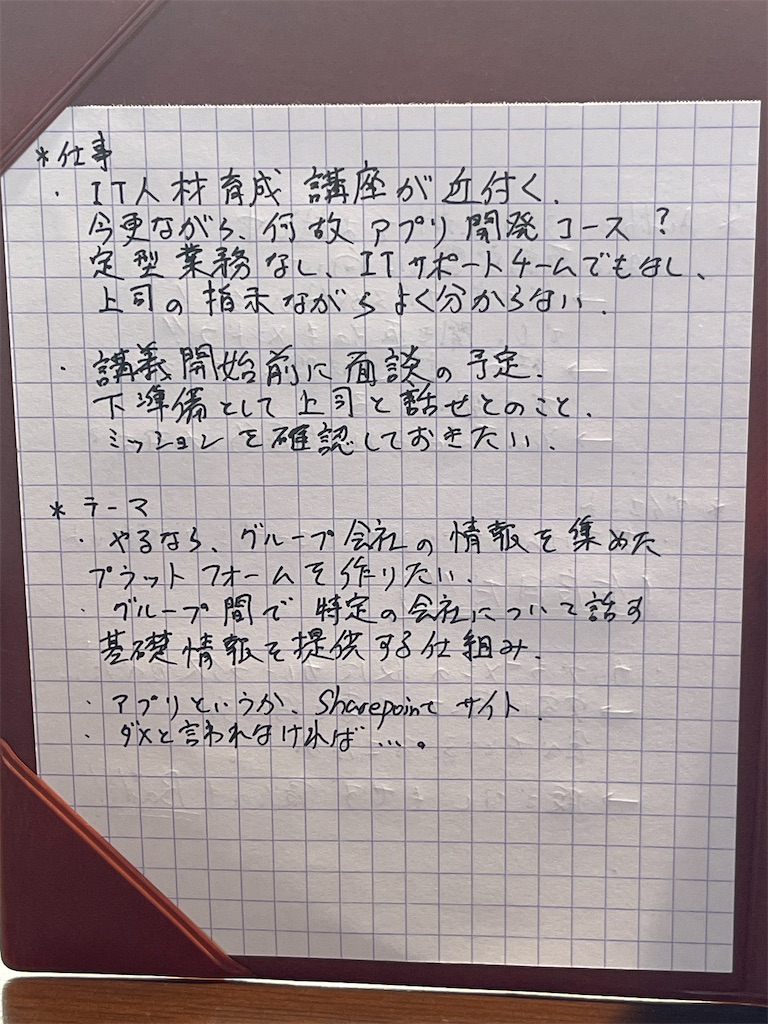 *仕事
・IT人材育成講座が近付く.
今更ながら、何故アプリ開発コース？
定型業務なし、ITサポートチームでもなし、
上司の指示ながらよく分からない.
・講義開始前に面談の予定.
下準備として上司と話せとのこと.
ミッションを確認しておきたい.
*テーマ
・やるなら、グループ会社の情報を集めた
プラットフォームを作りたい.
・グループ間で特定の会社について話す
基礎情報を提供する仕組み.
・アプリというか、Sharepointサイト.
・ダメと言われなければ…。